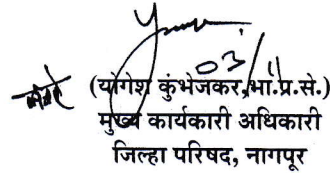 03/11
(योगेश कुंभेजकर,भा.प्र.से.)
मुख्य कार्यकारी अधिकारी
जिल्हा परिषद, नागपूर